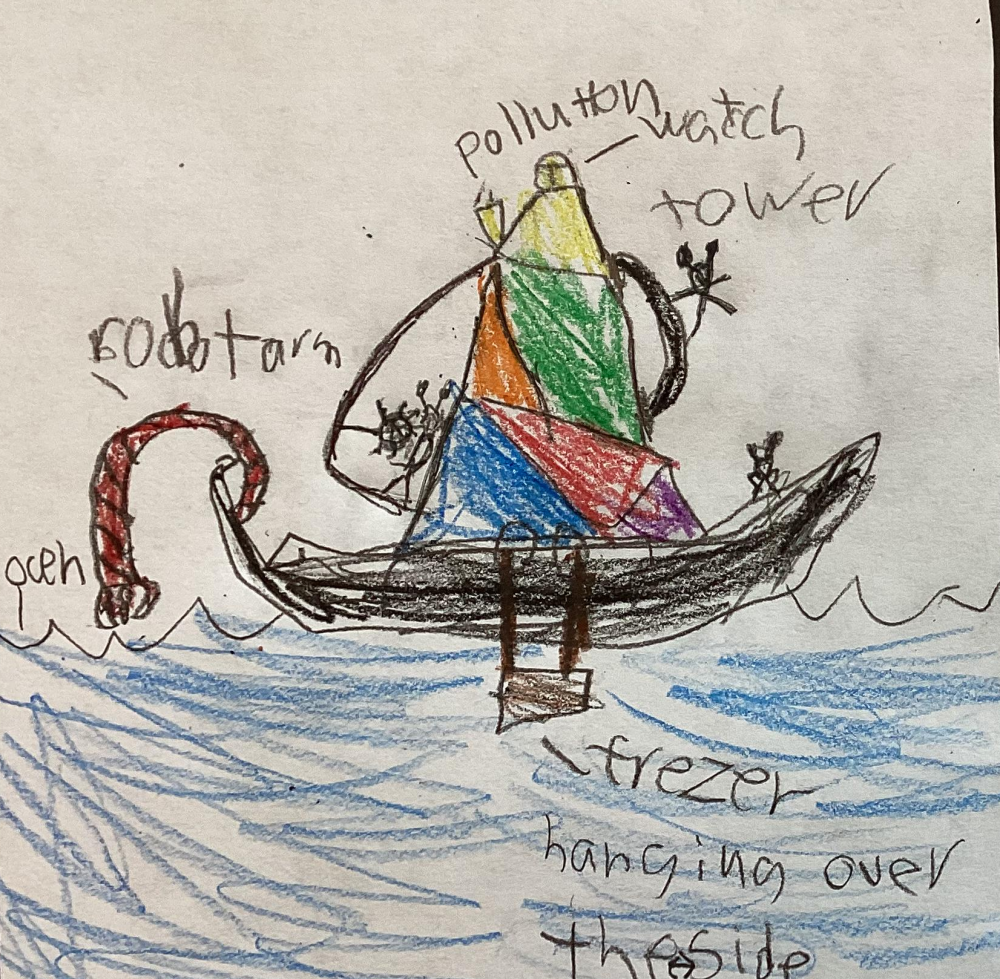 pollution
watch
tower
robot arm
ocen
frezer
hanging over
the side